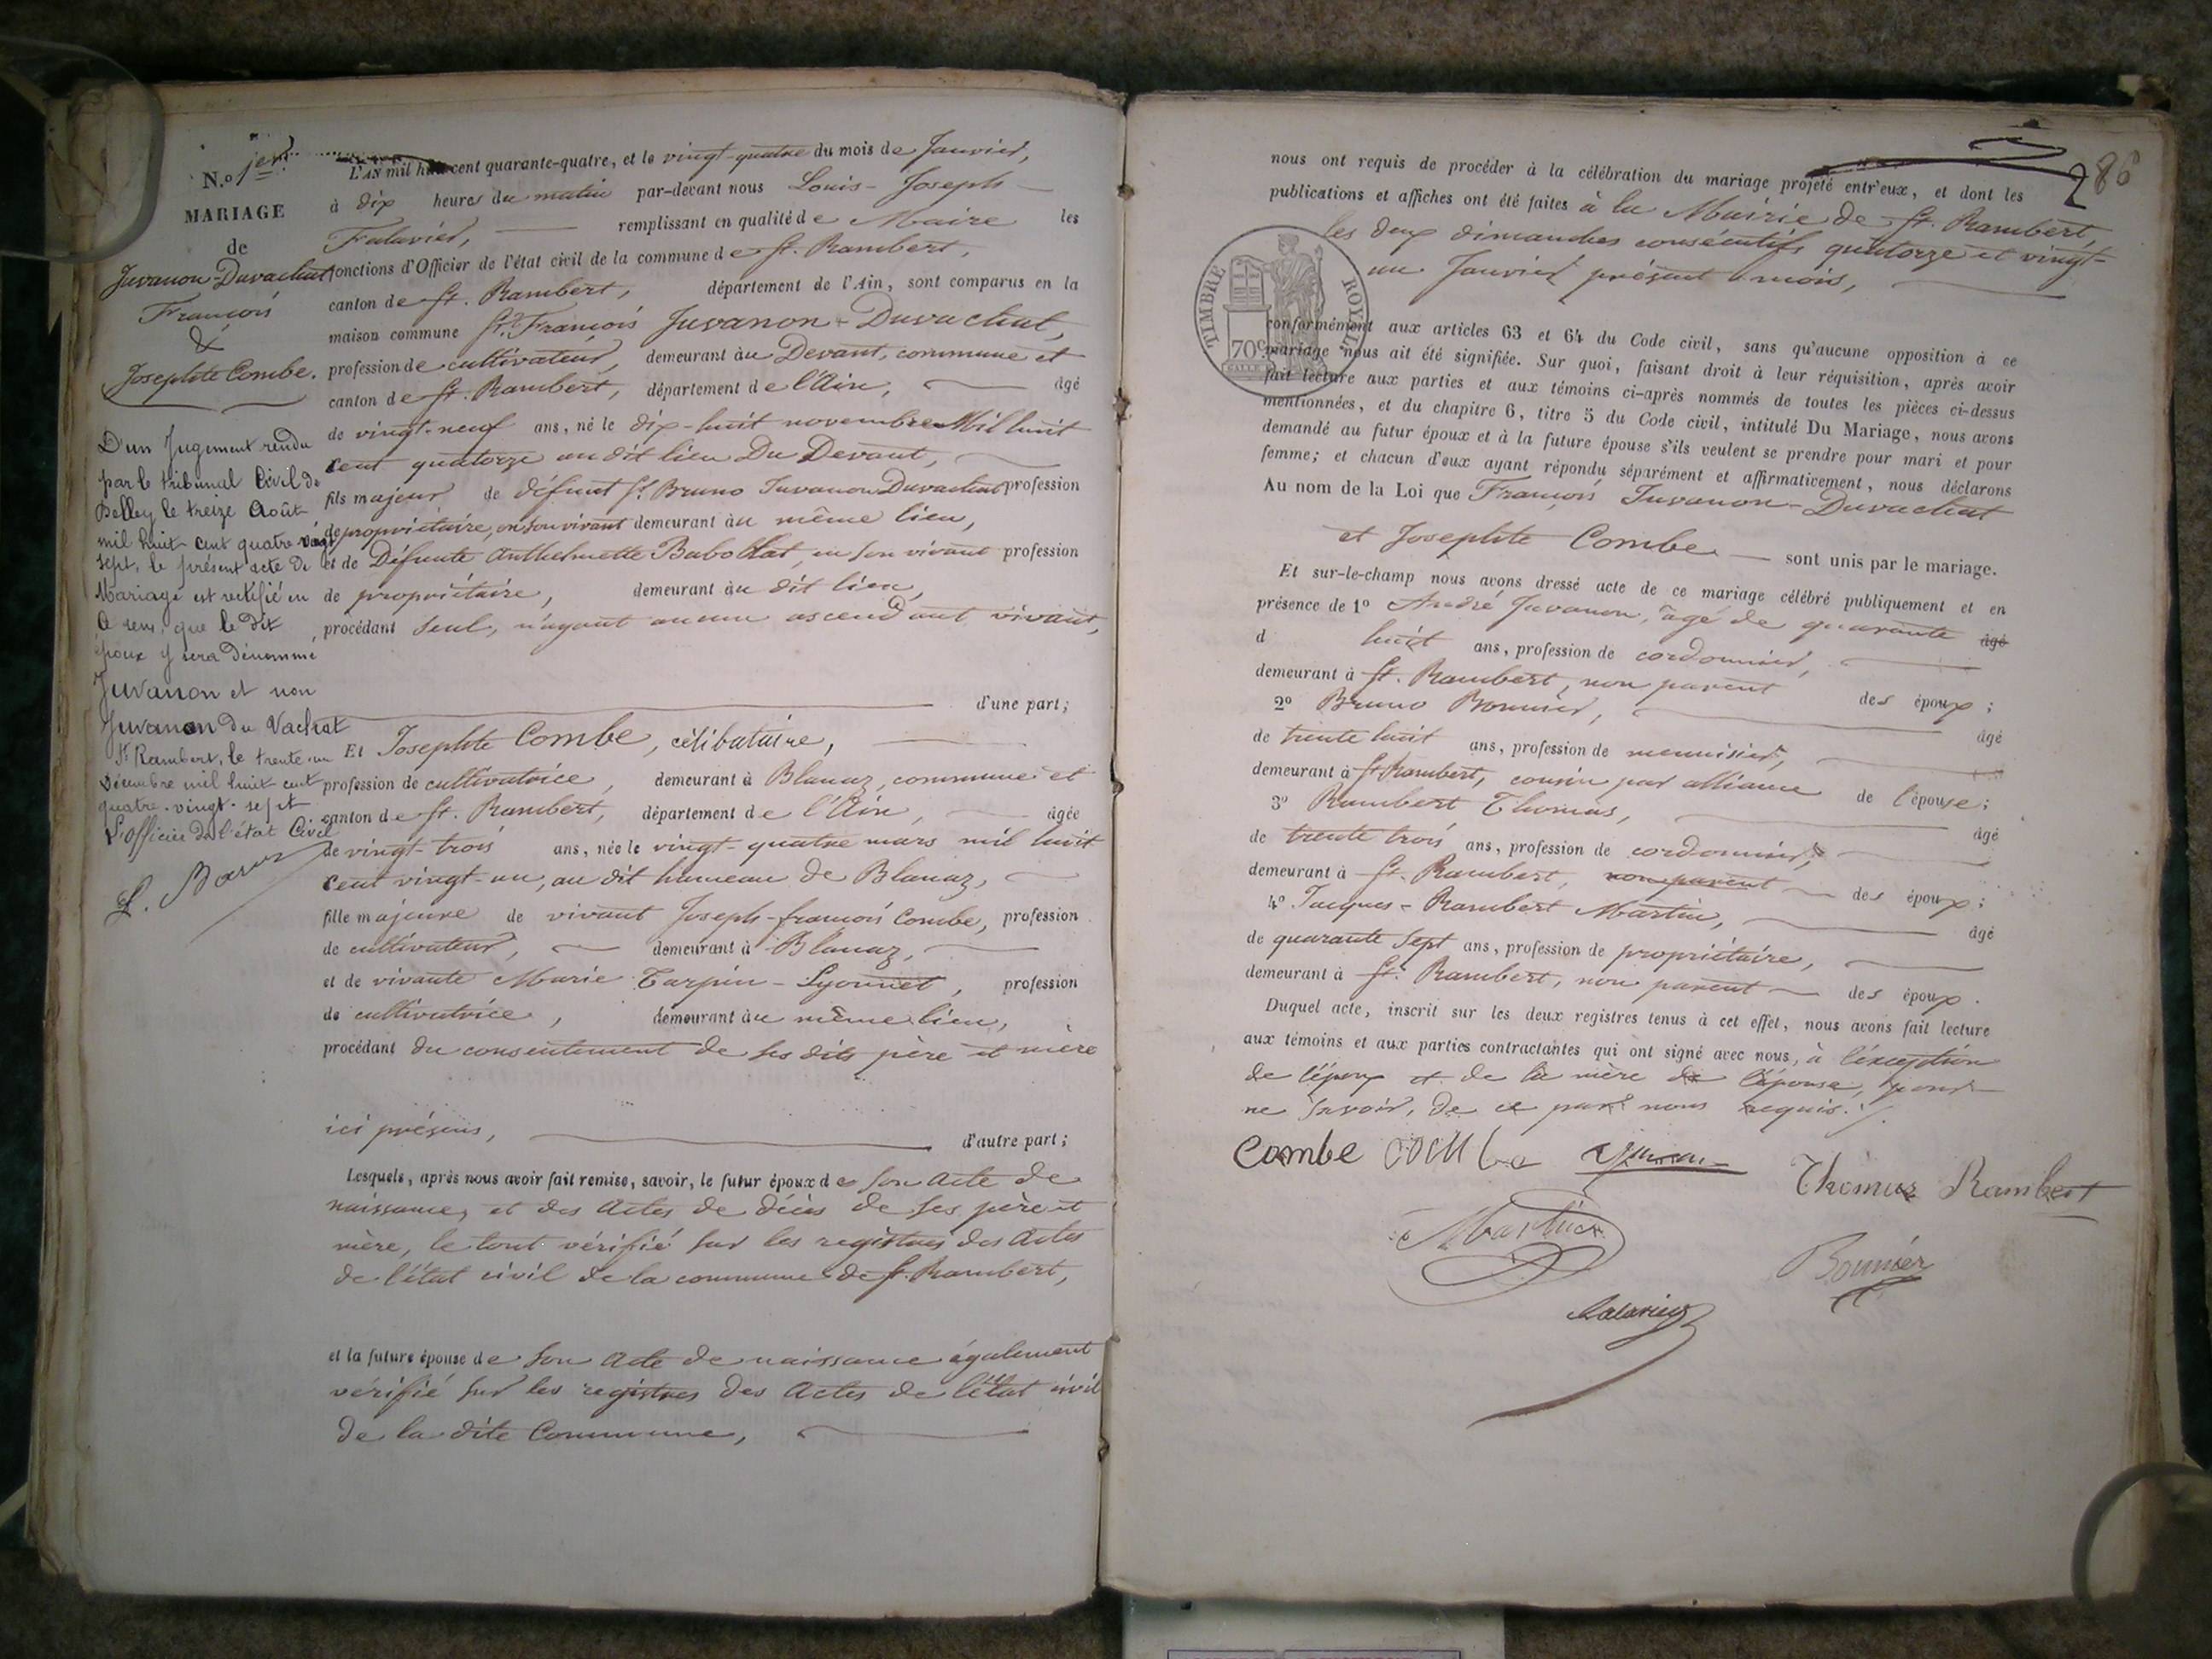 N.o 1er
MARIAGE
de
Juvanon-Duvachat
François
&
Josephte Combe.
D'un Jugement rendu
par le tribunal Civil de
Belley le treize Août
mil huit cent quatre vingt
sept, le présent acte de
Mariage est rectifié en
ce sens, que le dit
époux y sera dénommé
Juvanon et non
Juvanon du Vachat
St Rambert, le trente un
Décembre mil huit cent
quatre-vingt-sept
L'officier de l'état Civil
L'AN mil huit cent quarante-quatre, et le vingt-quatre du mois de Janvier,
à dix heures du matin par-devant nous Louis-Joseph
Falavier, remplissant en qualité de Maire les
fonctions d'Officier de l'état civil de la commune de St. Rambert,
canton de St. Rambert, département de l'Ain, sont comparus en la
maison commune Sr. François Juvanon-Duvachat,
profession de cultivateur, demeurant au Devant, commune et
canton de St. Rambert, département de l'Ain, âgé
de vingt-neuf ans, né le dix-huit novembre Mil huit
cent quatorze au dit lieu Du Devant,
fils majeur de défunt Sr. Bruno Juvanon Duvachat profession
de propriétaire, en son vivant demeurant au même lieu,
et de Défunte Anthelmette Babollat, en son vivant profession
de propriétaire, demeurant au dit lieu,
procédant seul, n'ayant aucun ascendant vivant,
d'une part;
Et Josephte Combe, célibataire,
profession de cultivatrice, demeurant à Blanaz, commune et
canton de St. Rambert, département de l'Ain, âgée
de vingt-trois ans, née le vingt-quatre mars mil huit
cent vingt-un, au dit hameau de Blanaz,
fille majeure de vivant Joseph-françois Combe, profession
de cultivateur, demeurant à Blanaz,
et de vivante Marie Tarpin-Lyonnet, profession
de cultivatrice, demeurant au même lieu,
procédant du consentement de ses dits père et mère
ici présens, d'autre part;
Lesquels, après nous avoir fait remise, savoir, le futur époux de son acte de
naissance, et des actes de décès de ses père et
mère, le tout vérifié sur les registres des actes
de l'état civil de la commune de St. Rambert,
et la future épouse de son acte de naissance également
vérifié sur les registres des Actes de l'état civil
de la dite Commune,
286
nous ont requis de procéder à la célébration du mariage projeté entr'eux, et dont les
publications et affiches ont été faites à la Mairie de St. Rambert,
les deux dimanches consécutifs quatorze et vingt-
un Janvier présent mois,
TIMBRE ROYAL
70c
conformément aux articles 63 et 64 du Code civil, sans qu'aucune opposition à ce
mariage nous ait été signifiée. Sur quoi, faisant droit à leur réquisition, après avoir
fait lecture aux parties et aux témoins ci-après nommés de toutes les pièces ci-dessus
mentionnées, et du chapitre 6, titre 5 du Code civil, intitulé Du Mariage, nous avons
demandé au futur époux et à la future épouse s'ils veulent se prendre pour mari et pour
femme; et chacun d'eux ayant répondu séparément et affirmativement, nous déclarons
Au nom de la Loi que François Juvanon-Duvachat
et Josephte Combe sont unis par le mariage.
Et sur-le-champ nous avons dressé acte de ce mariage célébré publiquement et en
présence de 1o André Juvanon, âgé de quarante âgé
d huit ans, profession de cordonnier,
demeurant à St. Rambert, non parent des époux;
2o Bruno Bonnier, âgé
de trente huit ans, profession de menuisier,
demeurant à St. Rambert, cousin par alliance de l'épouse;
3o Rambert Thomas, âgé
de trente trois ans, profession de cordonnier,
demeurant à St. Rambert, non parent des époux;
4o Jacques-Rambert Martin, âgé
de quarante sept ans, profession de propriétaire,
demeurant à St. Rambert, non parent des époux.
Duquel acte, inscrit sur les deux registres tenus à cet effet, nous avons fait lecture
aux témoins et aux parties contractantes qui ont signé avec nous, à l'exception
de l'époux et de la mère de l'épouse, pour
ne savoir, de ce par nous requis.
Combe Combe
Thomas Rambert
Martin
Bonnier
Falavier